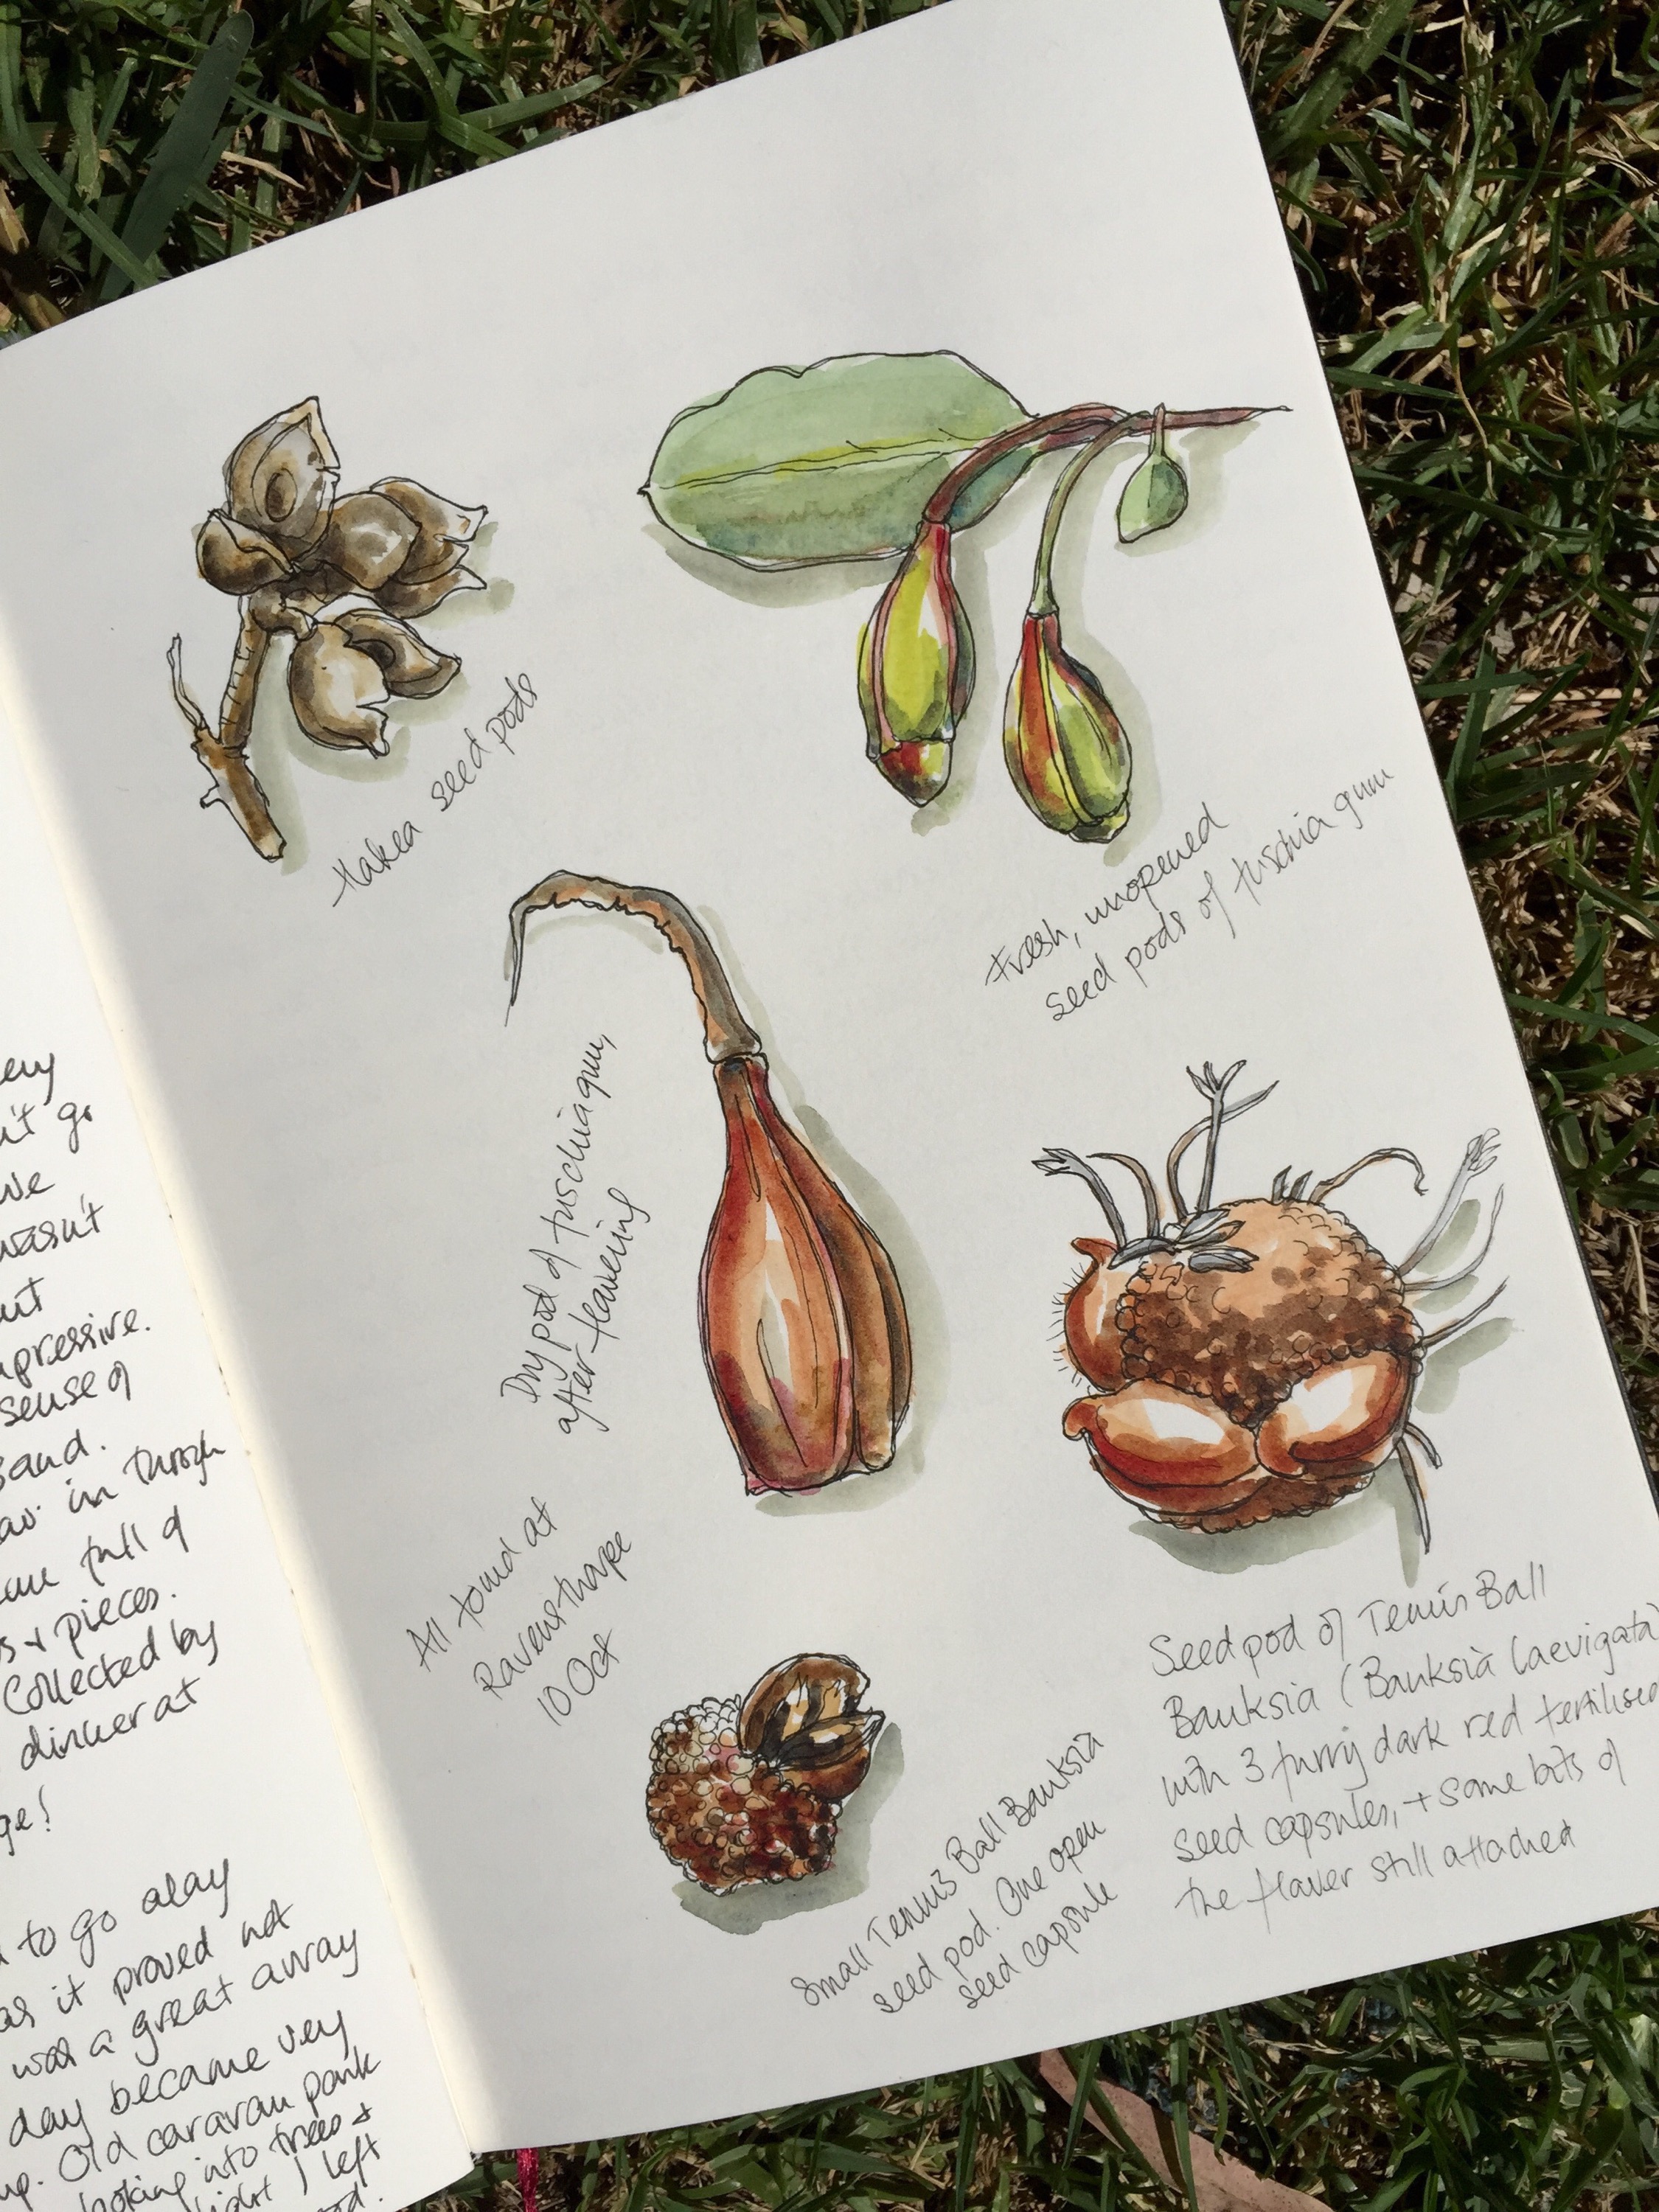 go
we
wasn't
sense of
sand.
in through
full of
pieces.
Collected by
dinner at
to go away
as it proved not
was a great away
day became very
up. Old caravan park
looking into trees +
left
Hakea seed pods
Fresh, unopened
seed pods of fuschia gum
Dry pod of fuschia gum,
after flowering
All found at
Ravensthorpe
10 Oct
Seed pod of Tennis Ball
Banksia (Banksia laevigata)
with 3 furry dark red fertilised
seed capsules, + some bits of
the flower still attached
Small Tennis Ball Banksia
seed pod. One open
seed capsule